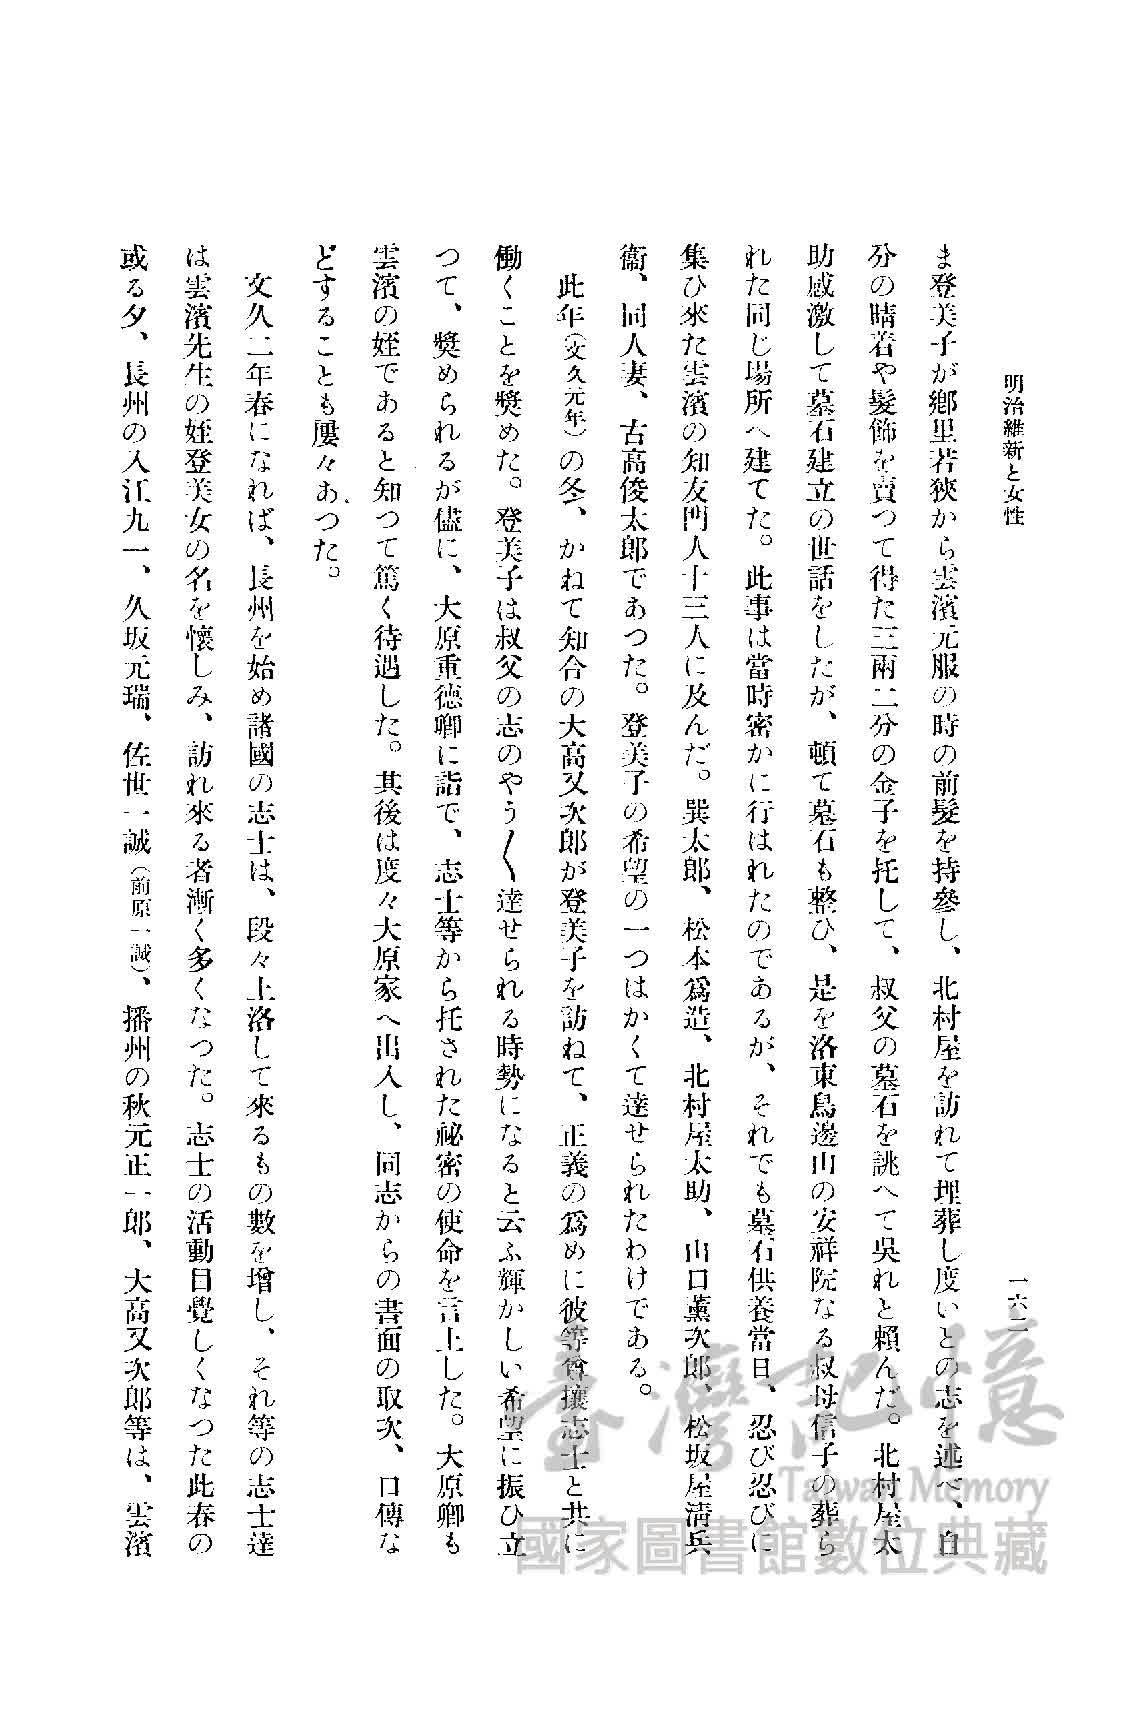 明治維新と女性
一六二
ま登美子が鄕里若狹から雲濱元服の時の前髮を持參し、北村屋を訪れて埋葬し度いとの志を述べ、自
分の晴着や髮飾を賣つて得た三兩二分の金子を托して、叔父の墓石を誂へて吳れと賴んだ。北村屋太
助感激して墓石建立の世話をしたが、頓て墓石も整ひ、是を洛東鳥邊山の安祥院なる叔母信子の葬ら
れた同じ場所へ建てた。此事は當時密かに行はれたのであるが、それでも墓石供養當日、忍び忍びに
集ひ來た雲濱の知友門人十三人に及んだ。巽太郞、松本爲造、北村屋太助、山口薰次郞、松坂屋淸兵
衞、同人妻、古高俊太郞であつた。登美子の希望の一つはかくて達せられたわけである。
此年（文久元年）の冬、かねて知合の大高又次郞が登美子を訪ねて、正義の爲めに彼等尊攘志士と共に
働くことを奬めた。登美子は叔父の志のやう〱達せられる時勢になると云ふ輝かしい希望に振ひ立
つて、奬められるが儘に、大原重德卿に詣で、志士等から托された祕密の使命を言上した。大原卿も
雲濱の姪であると知つて篤く待遇した。其後は度々大原家へ出入し、同志からの書面の取次、口傳な
どすることも屢々あつた。
文久二年春になれば、長州を始め諸國の志士は、段々上洛して來るもの數を增し、それ等の志士達
は雲濱先生の姪登美女の名を懷しみ、訪れ來る者漸く多くなつた。志士の活動目覺しくなつた此春の
或る夕、長州の入江九一、久坂元瑞、佐世一誠（前原一誠）、播州の秋元正一郞、大高又次郞等は、雲濱
臺灣記憶
Taiwan Memory
國家圖書館數位典藏